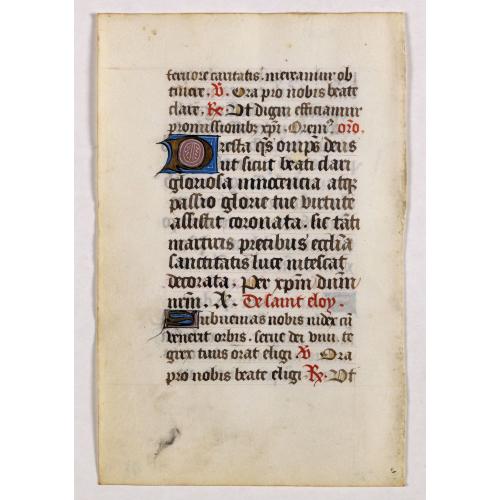 feruore caritatis. mereamur ob
tinere. V. Ora pro nobis beate
clare. Re Ut digni efficiamur
promissionibz xpi. Orem9. oro.
Presta qs omps deus
ut sicut beati clari
gloriosa innocencia atqz
passio glorie tue virtute
assistit coronata. sic tāti
martiris precibus eccl̄ia
sanctitatis luce nitescat
decorata. Per xpm dūm
nrm. A. De saint eloy.
Subuenias nobis
venerit orbis. serue dei viui. te
grex tuus orat eligi V Ora
pro nobis beate eligi Re. Ut